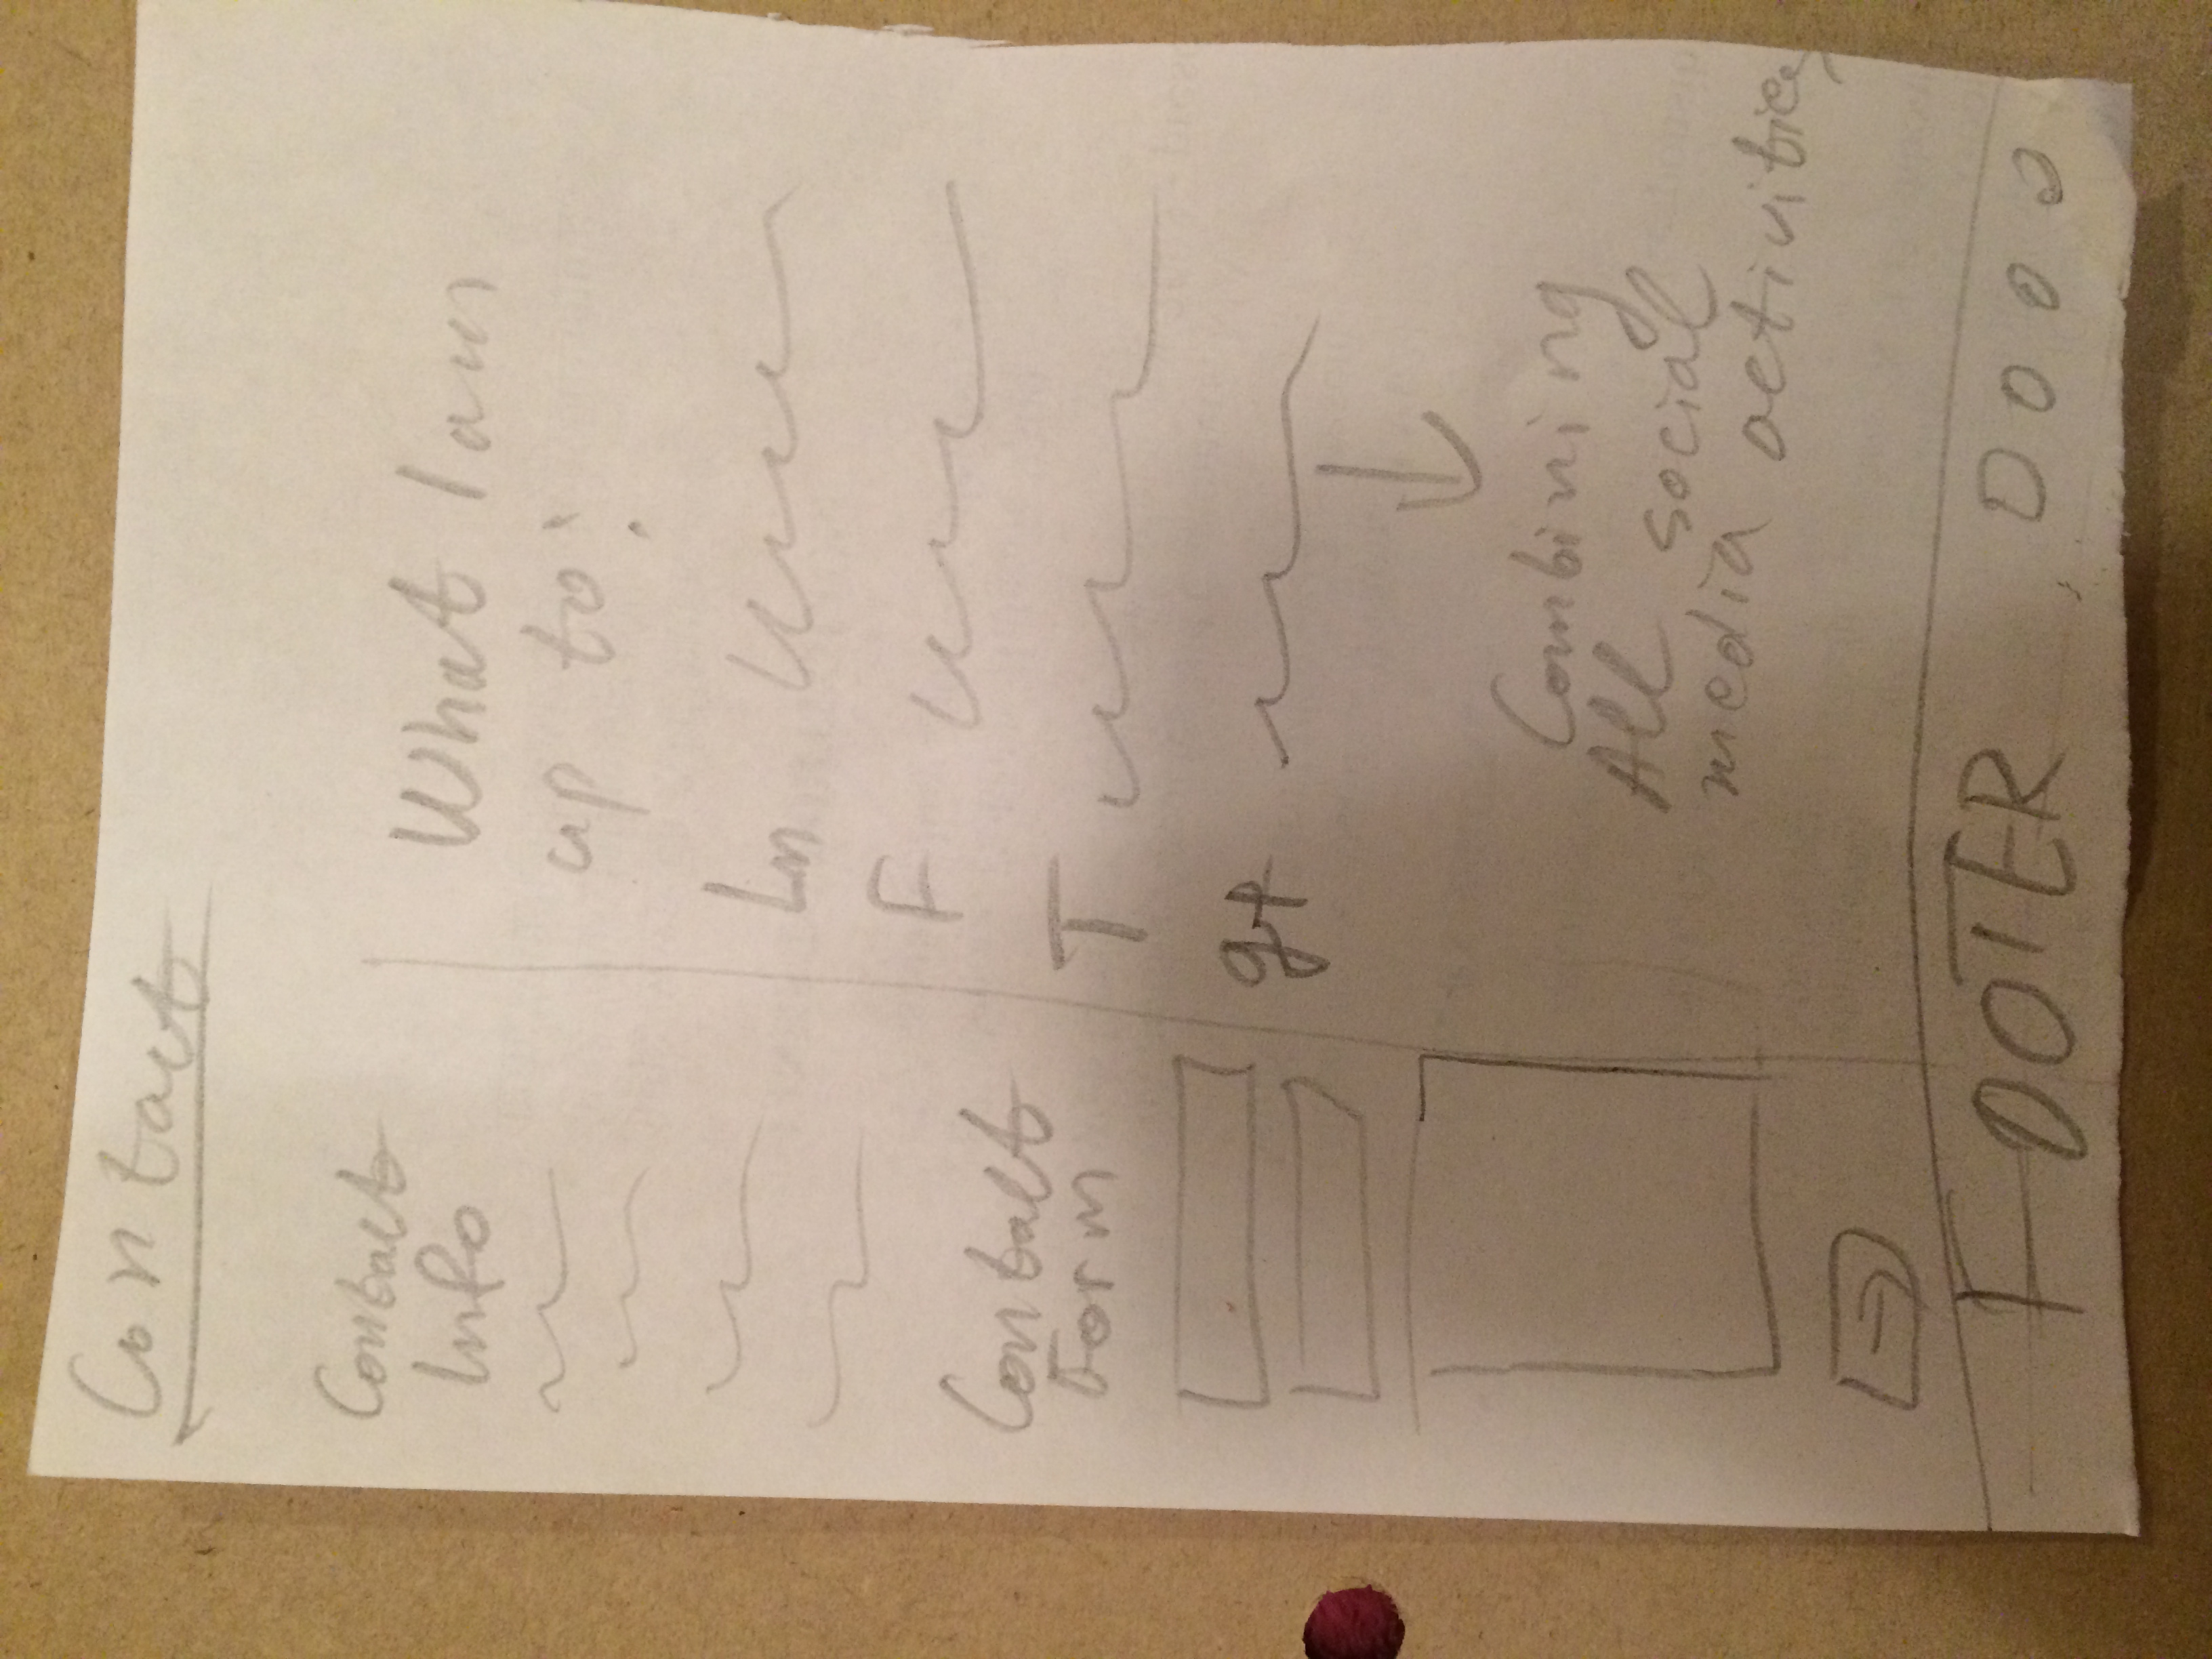 Contact
Contact
Info
Contact
Form
What I am
up to:
Ln
F
T
g+
Combining
All social
media activities
FOOTER